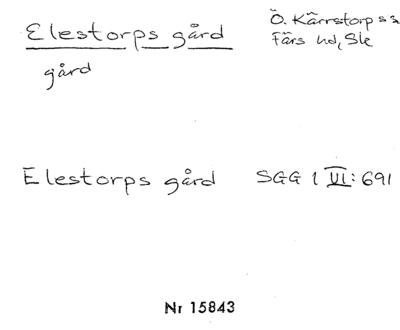 Elestorps gård
Ö. Kärrstorp ss
Färs hd, Sk
gård
Elestorps gård SGG 1 VI: 691
Nr 15843